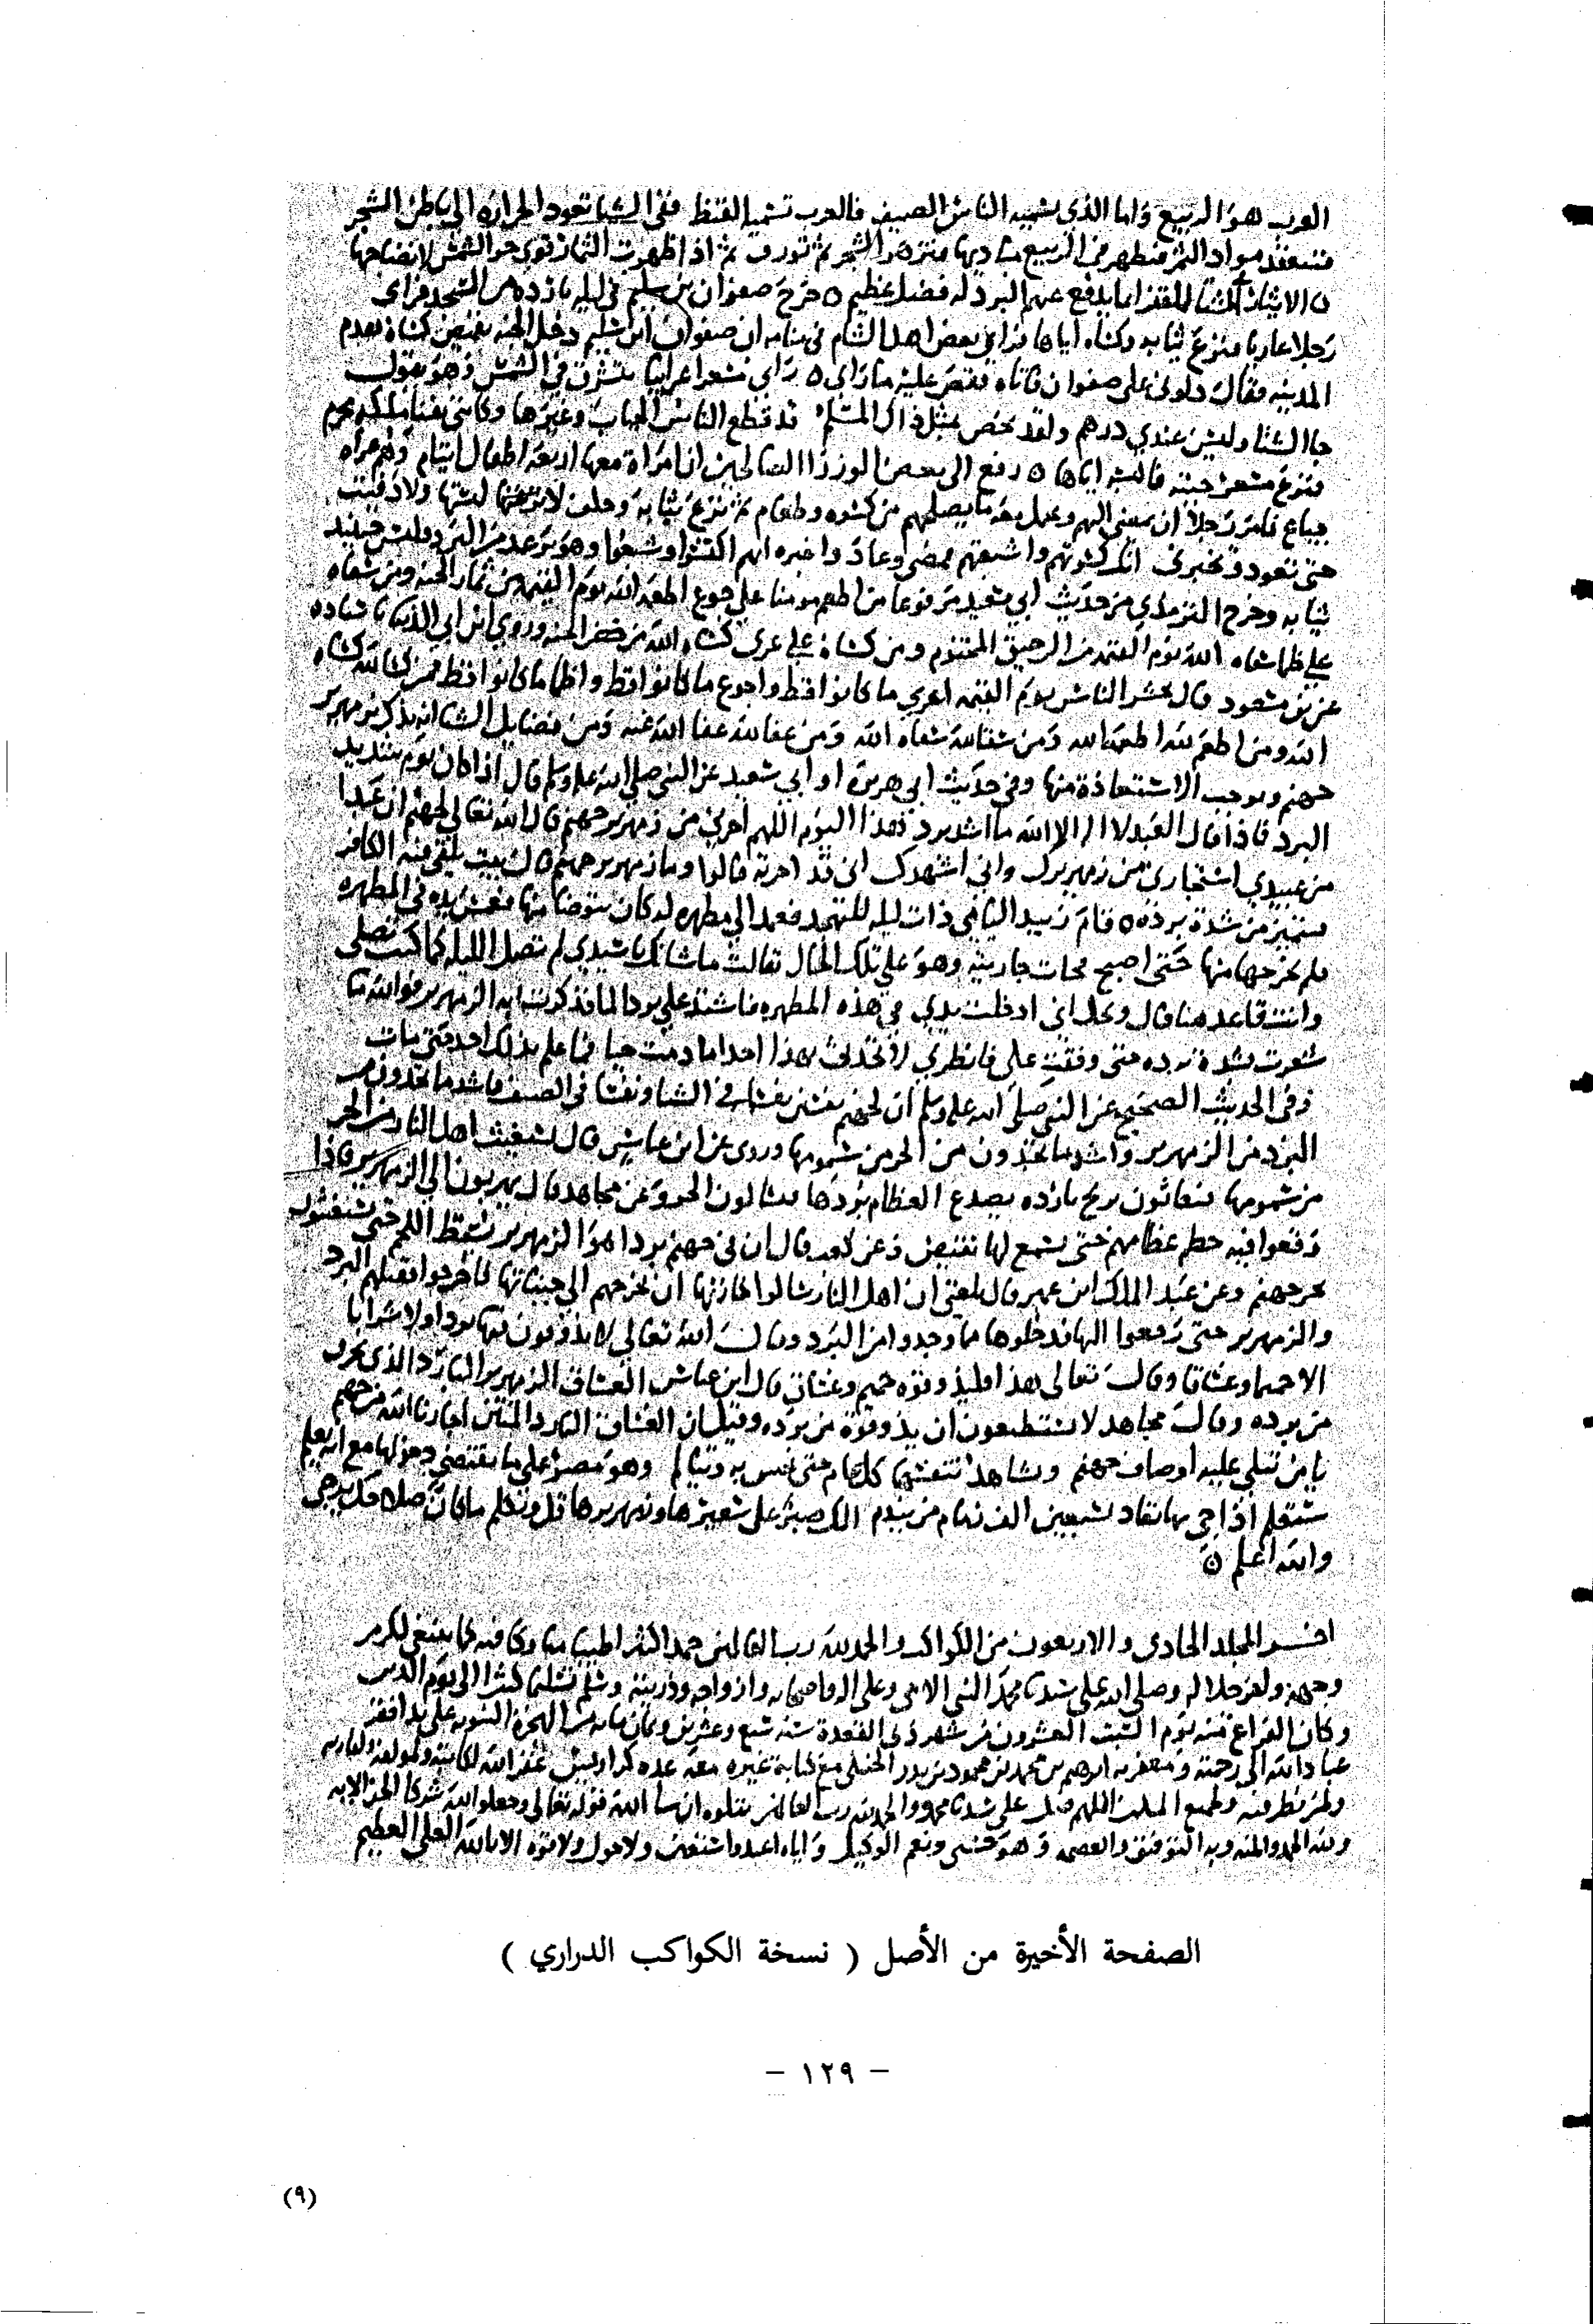 العرب هو الربيع واما الذي يسميه الناس الصيف فالعرب تسميه القيظ ففي الشتا تعود الحرارة الى باطن الشجر
فينعقد مواد الثمر فيظهر في الربيع مباديها فتزهر الشجر ثم تورق ثم اذا ظهرت الثمار قوي حر الشمس لانضاجها
الايثار في الشتا للفقرا بما يدفع عنهم البرد له فضل عظيم خرج صفوان بن سليم في ليلة باردة من المسجد فراى
رجلا عاريا فنزع ثيابه وكساه اياها فراى بعض اهل الشام في منامه ان صفوان ابن سليم دخل الجنة بقميص كساه فقدم
المدينة فقال دلوني على صفوان فاتاه فقص عليه ما راى راى مسعر اعرابيا يتشرق في الشمس وهو يقول
جا الشتا وليس عندي درهم ولقد يخص بمثل ذاك المسلم قد قطع الناس الجباب وغيرها وكانني بفنا مكة محرم
فنزع مسعر جبته فالبسه اياها رفع الى بعض الوزرا الصالحين ان امراة معها اربعة اطفال ايتام وهم عراة
جياع فامر رجلا ان يمضي اليهم وحمل معه ما يصلحهم من كسوة وطعام ثم نزع ثيابه وحلف لا لبستها ولا دفيت
حتى تعود وتخبرني انك كسوتهم واشبعتهم فمضى وعاد واخبره انهم اكتسوا وشبعوا وهو يرعد من البرد فلبس حينئذ
ثيابه وخرج الترمذي من حديث ابي سعيد مرفوعا من اطعم مومنا على جوع اطعمه الله يوم القيمة من ثمار الجنة ومن سقاه
على ظما سقاه الله يوم القيمة من الرحيق المختوم ومن كساه على عري كساه الله من خضر الجنة وروى ابن ابي الدنيا باسناده
عن بن مسعود قال يحشر الناس يوم القيمة اعرى ما كانوا قط واجوع ما كانوا قط واظما ما كانوا قط فمن كسا لله كساه
الله ومن اطعم لله اطعمه الله ومن سقا لله سقاه الله ومن عفا لله عفا الله عنه ومن فضايل الشتا انه يذكر بزمهرير
جهنم ويوجب الاستعاذة منها وفي حديث ابي هريرة او ابي سعيد عن النبي صلى الله عليه وسلم قال اذا كان يوم شديد
البرد فاذا قال العبد لا اله الا الله ما اشد برد هذا اليوم اللهم اجرني من زمهرير جهنم قال الله تعالى لجهنم ان عبدا
من عبيدي استجارني من زمهريرك واني اشهدك اني قد اجرته قالوا وما زمهرير جهنم قال بيت يلقى فيه الكافر
فيتميز من شدة برده قام زبيد اليامي ذات ليلة للتهجد فعمد الى مطهرة له كان يتوضا منها فغمس يده في المطهرة
فلم يخرجها منها حتى اصبح فجات جاريته وهو على تلك الحال فقالت ما شانك يا سيدي لم تصل الليلة كما كنت تصلي
وانت قاعد هنا قال ويحك اني ادخلت يدي في هذه المطهرة فاشتد علي برد الما فذكرت به الزمهرير فوالله ما
شعرت بشدة برده حتى وقفت علي فانظري لا تحدثي بهذا احدا ما دمت حيا فما علم بذلك احد حتى مات
وفي الحديث الصحيح عن النبي صلى الله عليه وسلم ان لجهنم نفسين نفسا في الشتا ونفسا في الصيف فاشد ما تجدون من
البرد من الزمهرير واشد ما تجدون من الحر من سمومها وروى عن ابن عباس قال يستغيث اهل النار من الحر
من سمومها فيغاثون بريح باردة يصدع العظام بردها فيسالون الحر وعن مجاهد قال يهربون الى الزمهرير فاذا
وقعوا فيه حطم عظامهم حتى يسمع لها نقيض وعن كعب قال ان في جهنم بردا هو الزمهرير يسقط اللحم حتى يستغيثوا
بحر جهنم وعن عبد الملك ابن عمير قال بلغني ان اهل النار سالوا خازنها ان يخرجهم الى جنباتها فاخرجوا فقتلهم البرد
والزمهرير حتى رجعوا اليها فدخلوها مما وجدوا من البرد وقال الله تعالى لا يذوقون فيها بردا ولا شرابا
الا حميما وغساقا وقال تعالى هذا فليذوقوه حميم وغساق قال ابن عباس الغساق الزمهرير البارد الذي يحرق
من برده وقال مجاهد لا يستطيعون ان يذوقوه من برده وقيل ان الغساق البارد المنتن اجارنا الله من جهنم
يا من تتلى عليه اوصاف جهنم ويشاهد تنفسها كل عام حتى يحس به ويتالم وهو مصر على ما يقتضي دخولها مع انه يعلم
ستعلم اذا جي بها تقاد بسبعين الف زمام من يندم الك صبر على سعيرها وزمهريرها قل وتكلم ما كان صلاحك يرجى
والله اعلم
اخر المجلد الحادي والاربعون من الكواكب والحمد لله رب العالمين حمدا كثيرا طيبا مباركا فيه كما ينبغي لكرم
وجهه ولعز جلاله وصلى الله على سيدنا محمد النبي الامي وعلى اله واصحابه وازواجه وذريته وسلم تسليما كثيرا الى يوم الدين
وكان الفراغ منه يوم السبت العشرون من شهر ذي القعدة سنة سبع وعشرين وثمان مائة من الهجرة النبوية على يد افقر
عباد الله الى رحمته ومغفرته ابرهيم بن محمد بن محمود بن بدر الحنبلي مع كتابة غيره معه عدة كراريس غفر الله لكاتبه ولمولفه ولقاريه
ولمن نظر فيه ولجميع المسلمين اللهم صل على سيدنا محمد والحمد لله رب العالمين يتلوه ان شا الله قوله تعالى وجعلوا لله شركا الجن الاية
ولله الحمد والمنة وبه التوفيق والعصمة وهو حسبي ونعم الوكيل واياه اعبد واستعين ولا حول ولا قوة الا بالله العلي العظيم
الصفحة الأخيرة من الأصل ( نسخة الكواكب الدراري )
– ١٢٩ –
(٩)